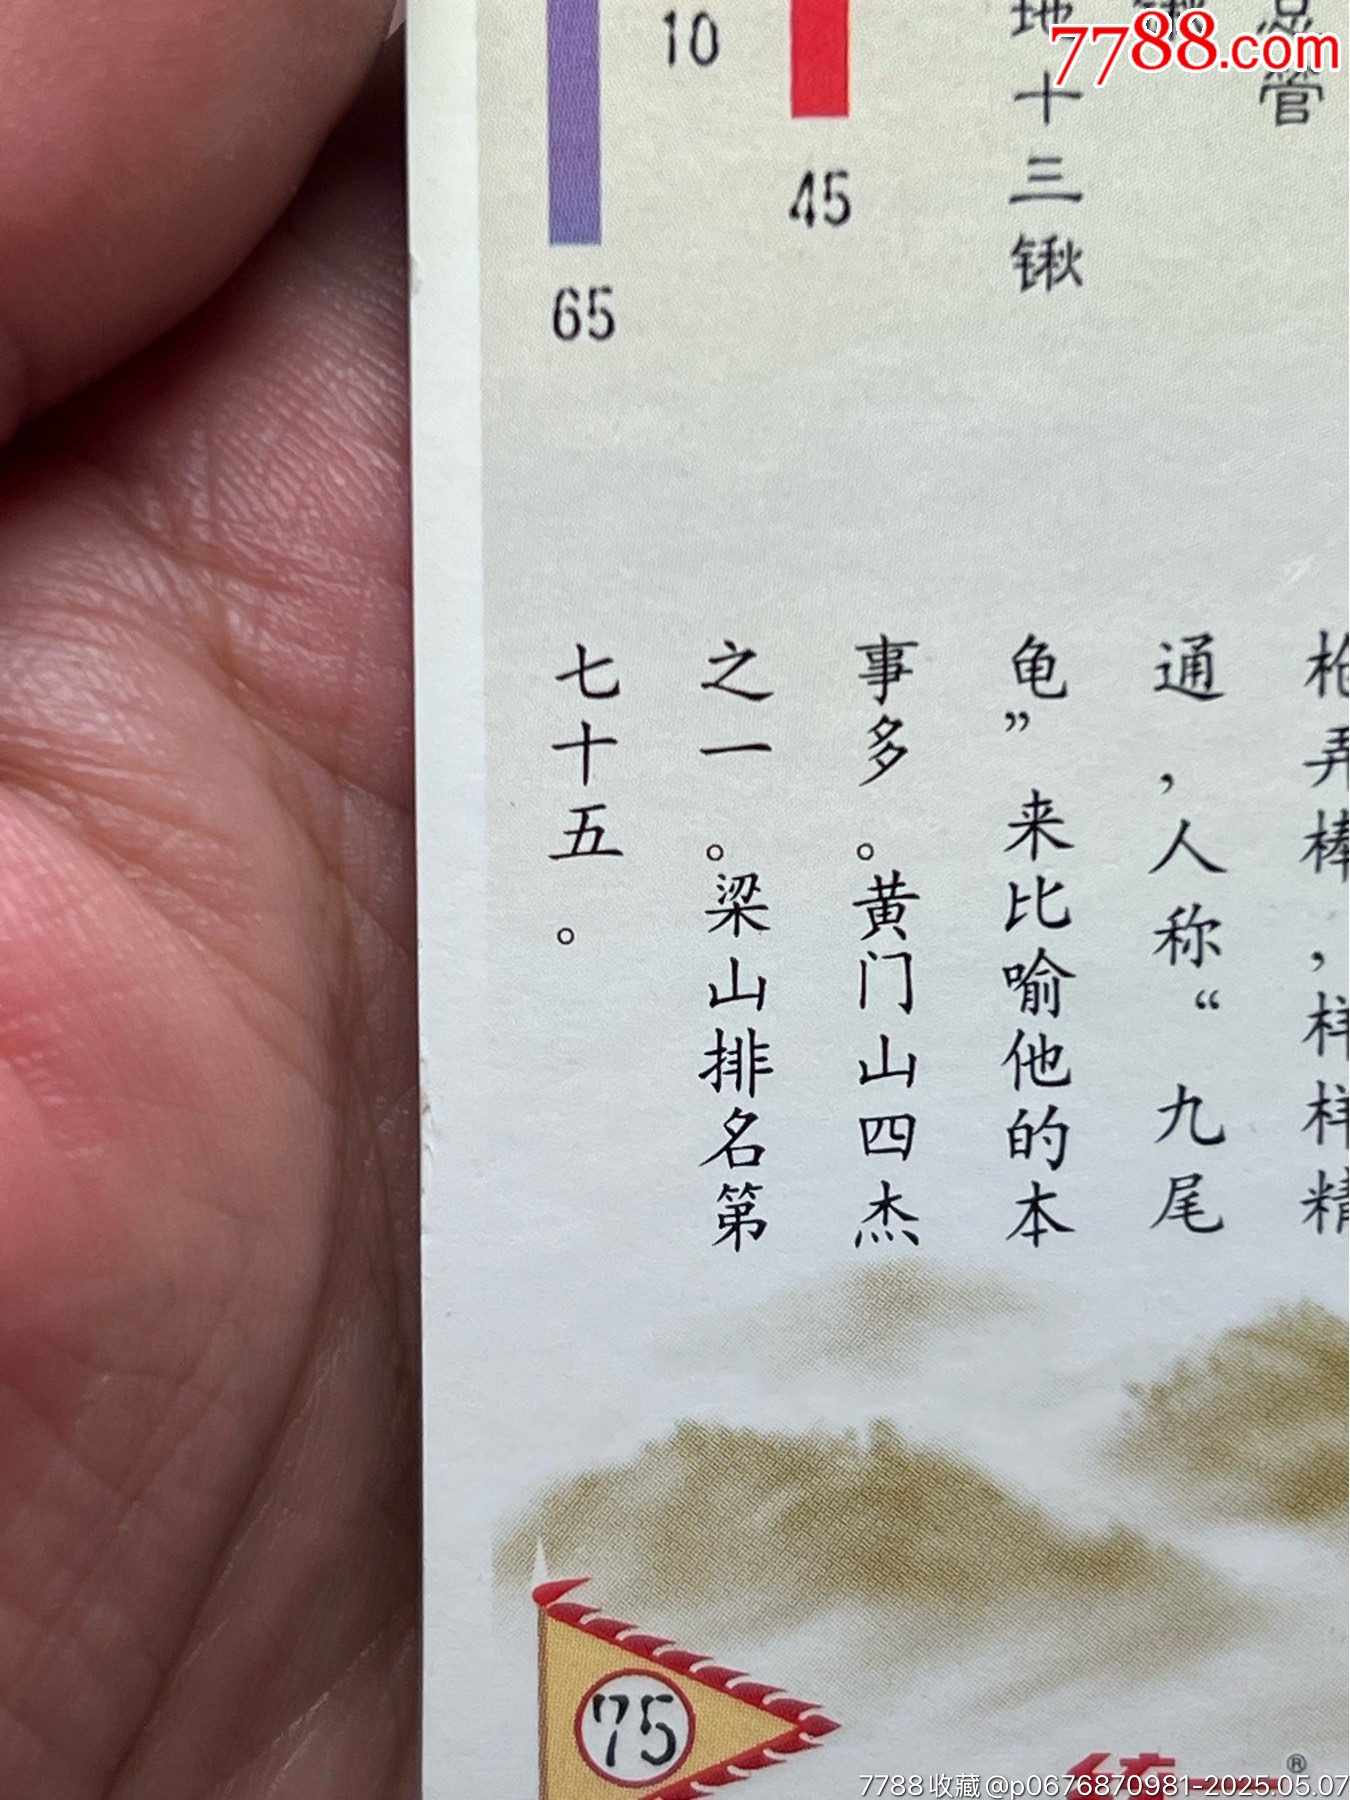 7788.com
总管
锹
地十三锹
45
10
65
枪弄棒,样样精
通,人称“九尾
龟”来比喻他的本
事多。黄门山四杰
之一。梁山排名第
七十五。
75
统一®
7788收藏@p0676870981-2025.05.07